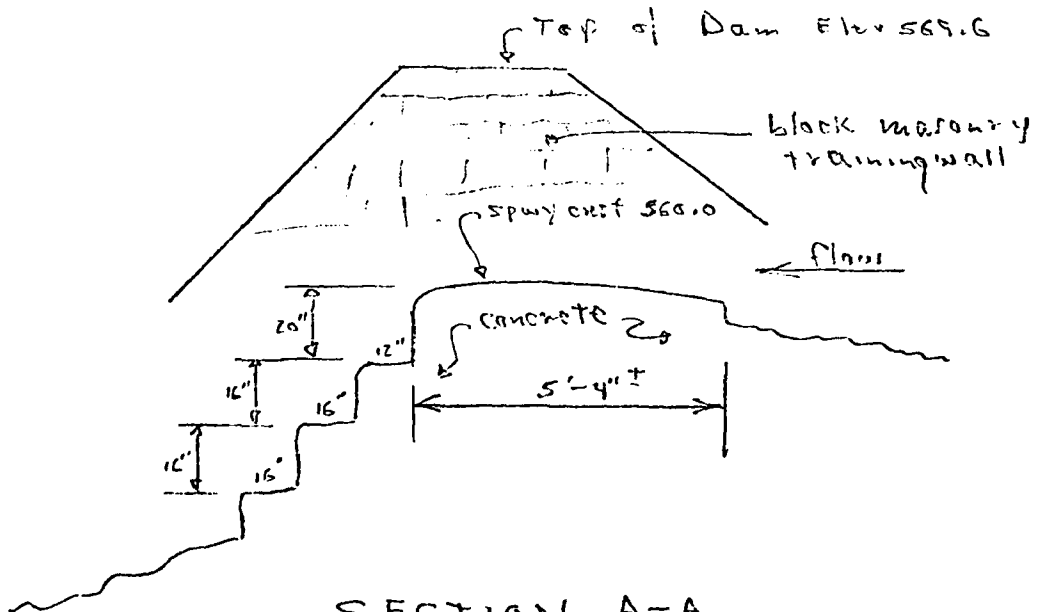 Top of Dam Elev 569.6
block masonry
training wall
spwy crest 560.0
flow
20"
concrete
12"
16"
16"
5'-4" ±
16"
16"
SECTION A-A